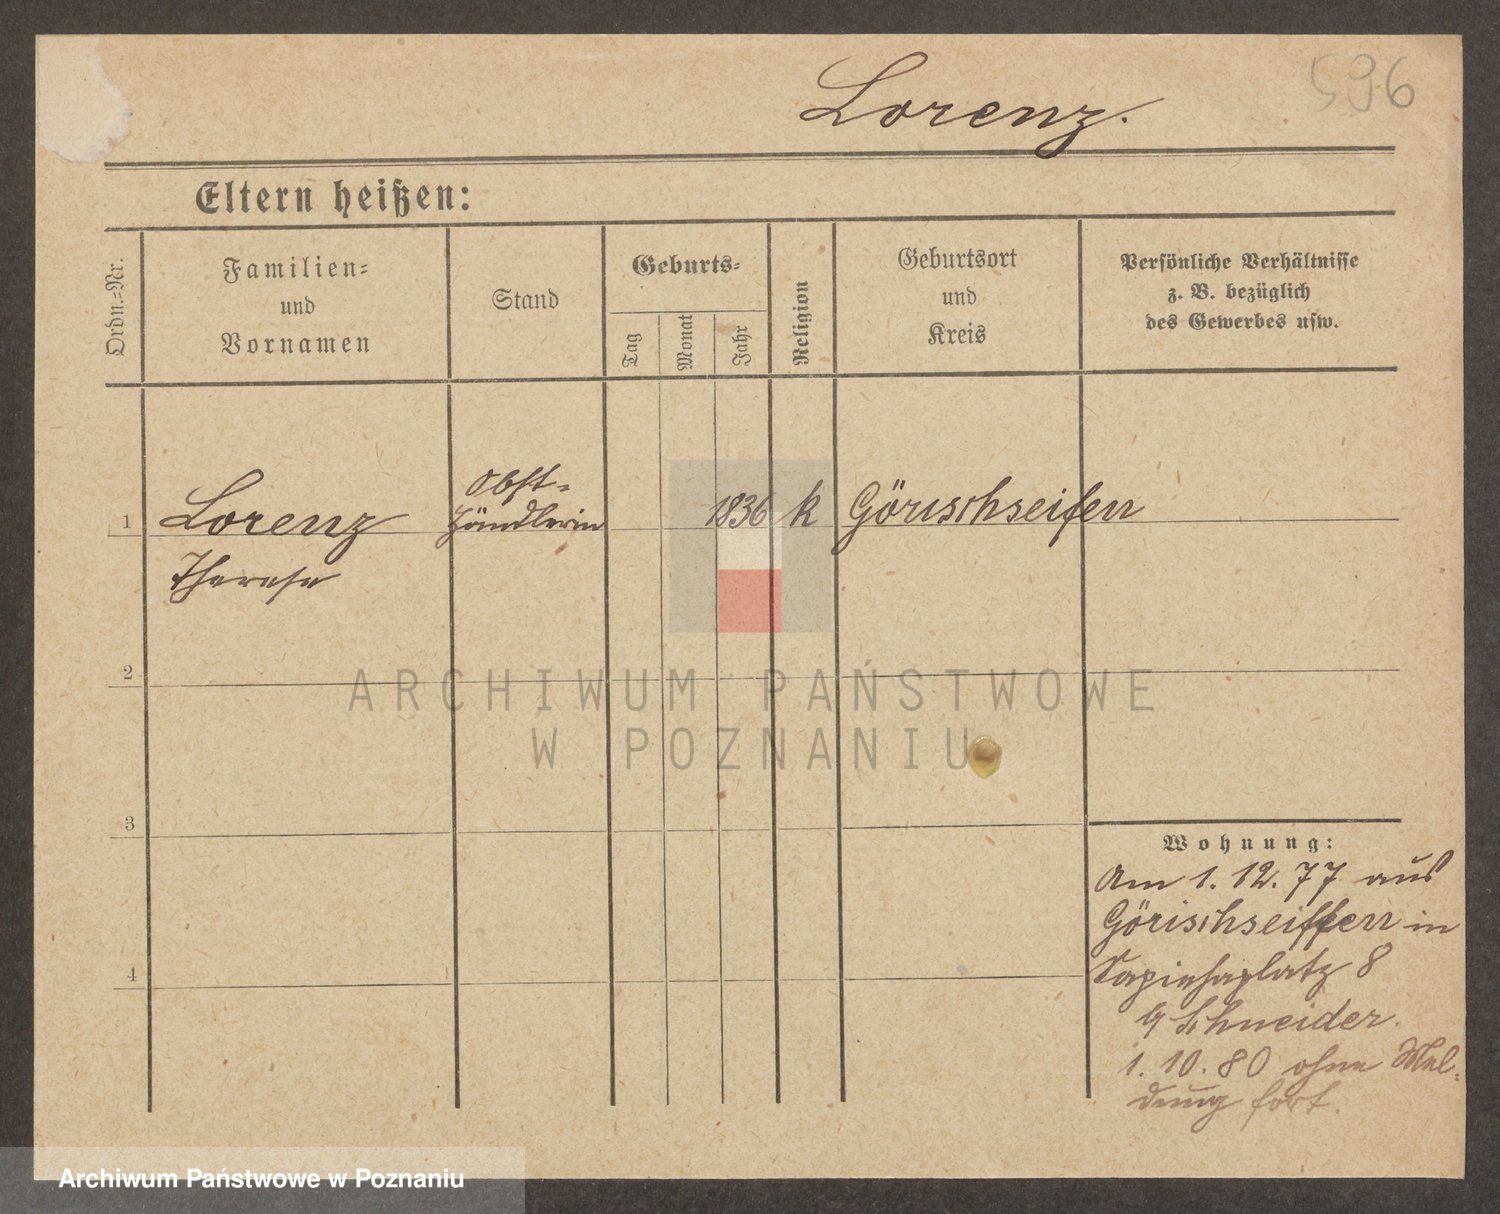 596
Lorenz.
Eltern heißen:
Ordn.=Nr.
Familien=
und
Vornamen
Stand
Geburts=
Tag
Monat
Jahr
Religion
Geburtsort
und
Kreis
Persönliche Verhältnisse
z. B. bezüglich
des Gewerbes usw.
1
Lorenz
Therese
Obst-
händlerin
1836
k
Görischseifen
2
3
4
Wohnung:
Am 1. 12. 77 aus
Görischseiffen in
Sapiehaplatz 8
b/ Schneider.
1. 10. 80 ohne Mel-
dung fort.
ARCHIWUM PAŃSTWOWE
W POZNANIU
Archiwum Państwowe w Poznaniu